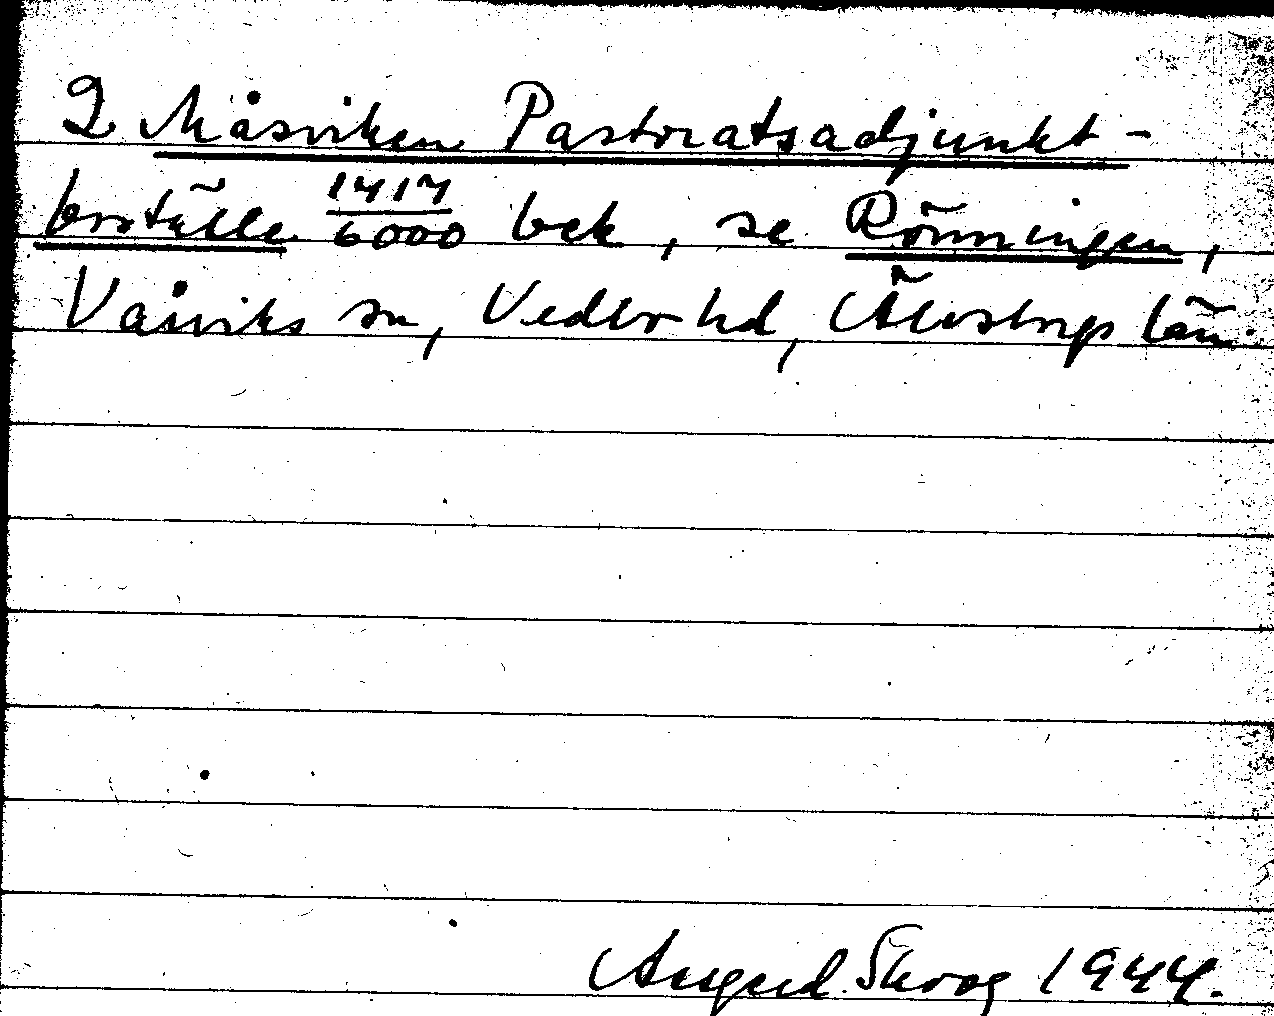 2 Måsviken Pastoratsadjunkt-
boställe 1417/6000 bek, se Rönningen,
Våsviks sn, Vedbo hd, Älvsborgs län.
Skoog 1944.